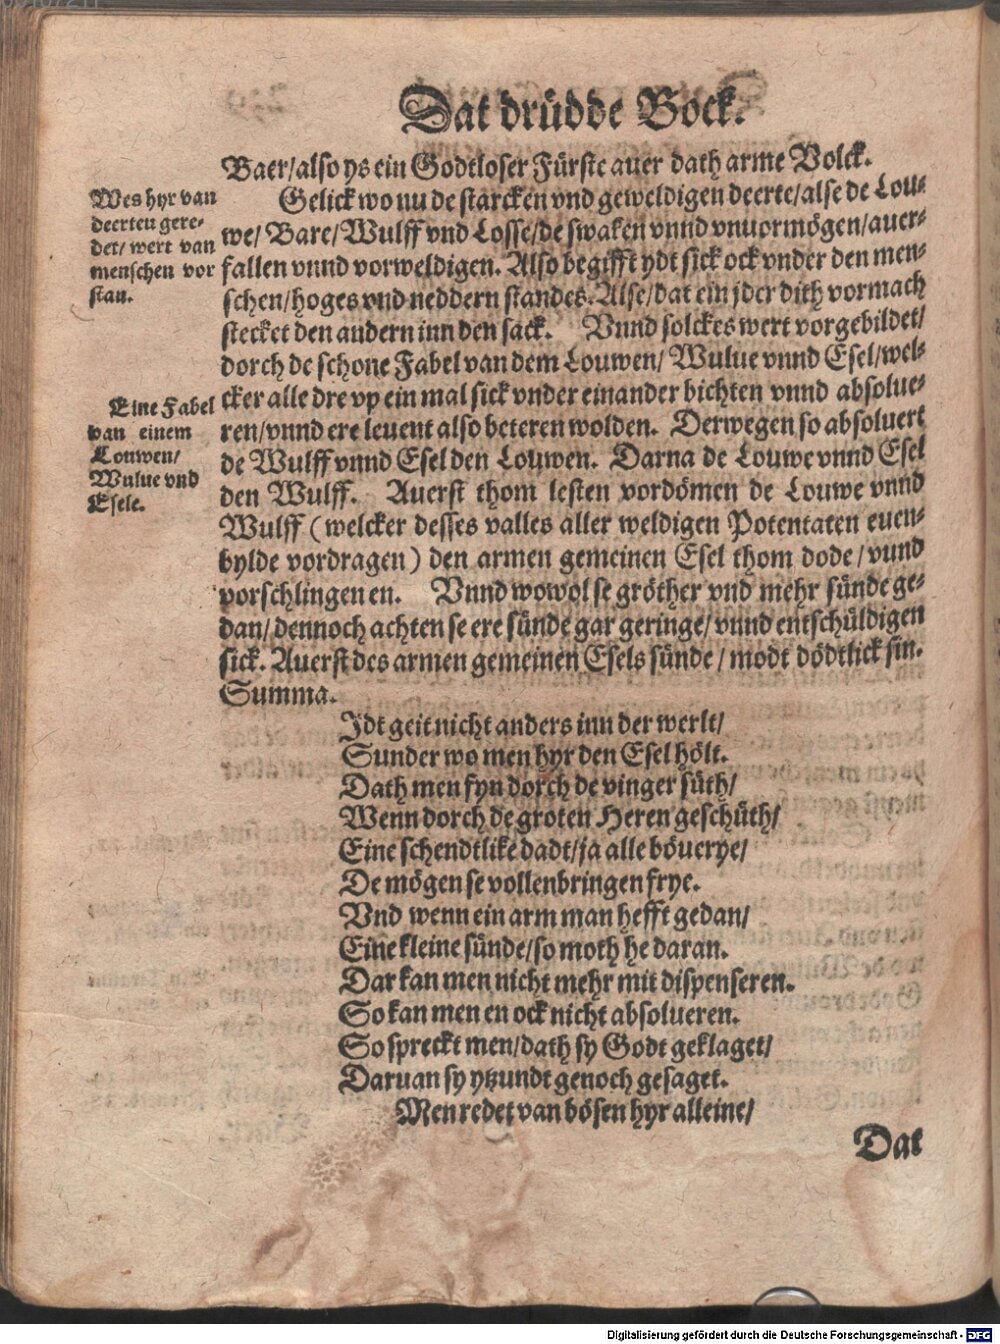 Dat drüdde Bock.
Baer/also ys ein Godtloser Fürste auer dath arme Volck.
Wes hyr van
deerten gere-
det/ wert van
menschen vor
stan.
Gelick wo nu de starcken vnd geweldigen deerte/alse de Lou-
we/ Bare/Wulff vnd Losse/de swaken vnnd vnuormögen/auer-
fallen vnnd vorweldigen. Also begifft ydt sick ock vnder den men-
schen/hoges vnd neddern standes. Alse/dat ein jder dith vormach
stecket den andern inn den sack. Vnnd solckes wert vorgebildet/
dorch de schone Fabel van dem Louwen/ Wulue vnnd Esel/wel-
Eine Fabel
van einem
Louwen/
Wulue vnd
Esele.
cker alle dre vp ein mal sick vnder einander bichten vnnd absolue-
ren/vnnd ere leuent also beteren wolden. Derwegen so absoluert
de Wulff vnnd Esel den Louwen. Darna de Louwe vnnd Esel
den Wulff. Auerst thom lesten vordömen de Louwe vnnd
Wulff (welcker desses valles aller weldigen Potentaten euen-
bylde vordragen) den armen gemeinen Esel thom dode/vnnd
vorschlingen en. Vnnd wowol se gröther vnd mehr sünde ge-
dan/dennoch achten se ere sünde gar geringe/vnnd entschüldigen
sick. Auerst des armen gemeinen Esels sünde/modt dödtlick sin.
Summa.
Idt geit nicht anders inn der werlt/
Sunder wo men hyr den Esel hölt.
Dath men fyn dorch de vinger süth/
Wenn dorch de groten Heren geschüth/
Eine schendtlike dadt/ja alle böuerye/
De mögen se vollenbringen frye.
Vnd wenn ein arm man hefft gedan/
Eine kleine sünde/so moth he daran.
Dar kan men nicht mehr mit dispenseren.
So kan men en ock nicht absolueren.
So spreckt men/dath sy Godt geklaget/
Daruan sy ytzundt genoch gesaget.
Men redet van bösen hyr alleine/
Dat
Digitalisierung gefördert durch die Deutsche Forschungsgemeinschaft - DFG